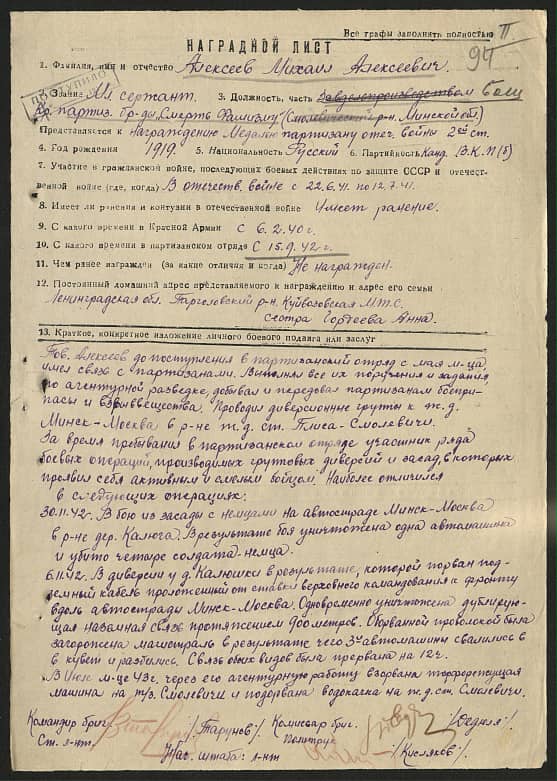 Все графы заполнить полностью П
94
НАГРАДНОЙ ЛИСТ
1. Фамилия, имя и отчество Алексеев Михаил Алексеевич.
2. Звание Мл. сержант. 3. Должность, часть боец
партиз. бр-ды „Смерть Фашизму" (Смолевический р-н. Минской обл.)
Представляется к Награждению Медалью партизану отеч. войны 2ой ст.
4. Год рождения 1919. 5. Национальность Русский 6. Партийность Канд. В.К.П(б)
7. Участие в гражданской войне, последующих боевых действиях по защите СССР и отечест-
венной войне (где, когда) В отечеств. войне с 22.6.41. по 12.7.41.
8. Имеет ли ранения и контузии в отечественной войне Имеет ранение.
9. С какого времени в Красной Армии с 6.2.40г.
10. С какого времени в партизанском отряде с 15.9.42г.
11. Чем ранее награжден (за какие отличия и когда) Не награжден.
12. Постоянный домашний адрес представляемого к награждению и адрес его семьи
Ленинградская обл. Парголовский р-н. Куйвозовская М.Т.С.
сестра Анна.
13. Краткое, конкретное изложение личного боевого подвига или заслуг
Тов. Алексеев до поступления в партизанский отряд с мая м-ца
имел связь с партизанами. Выполнял все их поручения и задания
по агентурной разведке, добывал и передавал партизанам боепри-
пасы и взрыввещества. Проводил диверсионные группы к ж.д.
Минск-Москва в р-не ж.д. ст. Плиса-Смолевичи.
За время пребывания в партизанском отряде участник ряда
боевых операций, производимых групповых диверсий и засад, в которых
проявил себя активным и смелым бойцом. Наиболее отличился
в следующих операциях:
30.11.42г. В бою из засады с немцами на автостраде Минск-Москва
в р-не дер. Калюга. В результате боя уничтожена одна автомашина
и убито четыре солдата-немца.
6.11.42г. В диверсии у д. Калюжки в результате, которой порван под-
земный кабель проложенный от ставки верховного командования к фронту
вдоль автострады Минск-Москва. Одновременно уничтожена дублирую-
щая наземная связь протяжением 900 метров. Порванной проволокой была
загорожена магистраль в результате чего 3и автомашины свалились в
в кювет и разбились. Связь обоих видов была прервана на 12ч.
В Июне м-це 43г. через его агентурную работу взорвана торфорежущая
машина на т/з. Смолевичи и подорвана водокачка на ж.д. ст. Смолевичи.
Командир бриг. /Тарунов/ Комиссар бриг. /Дедюля/
Ст. л-нт. Политрук
Нач. штаба: л-нт /Кисляков/